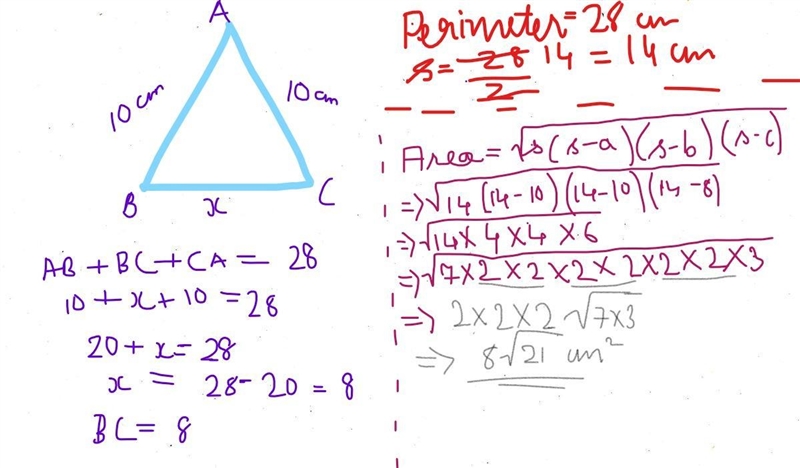 A
10 cm
10 cm
B
x
C
AB + BC + CA = 28
10 + x + 10 = 28
20 + x = 28
x = 28 - 20 = 8
BC = 8
Perimeter = 28 cm
s = 28/2 14 = 14 cm
Area = √s(s-a)(s-b)(s-c)
=> √14(14-10)(14-10)(14-8)
=> √14×4×4×6
=> √7×2×2×2×2×2×2×3
=> 2×2×2√7×3
=> 8√21 cm²